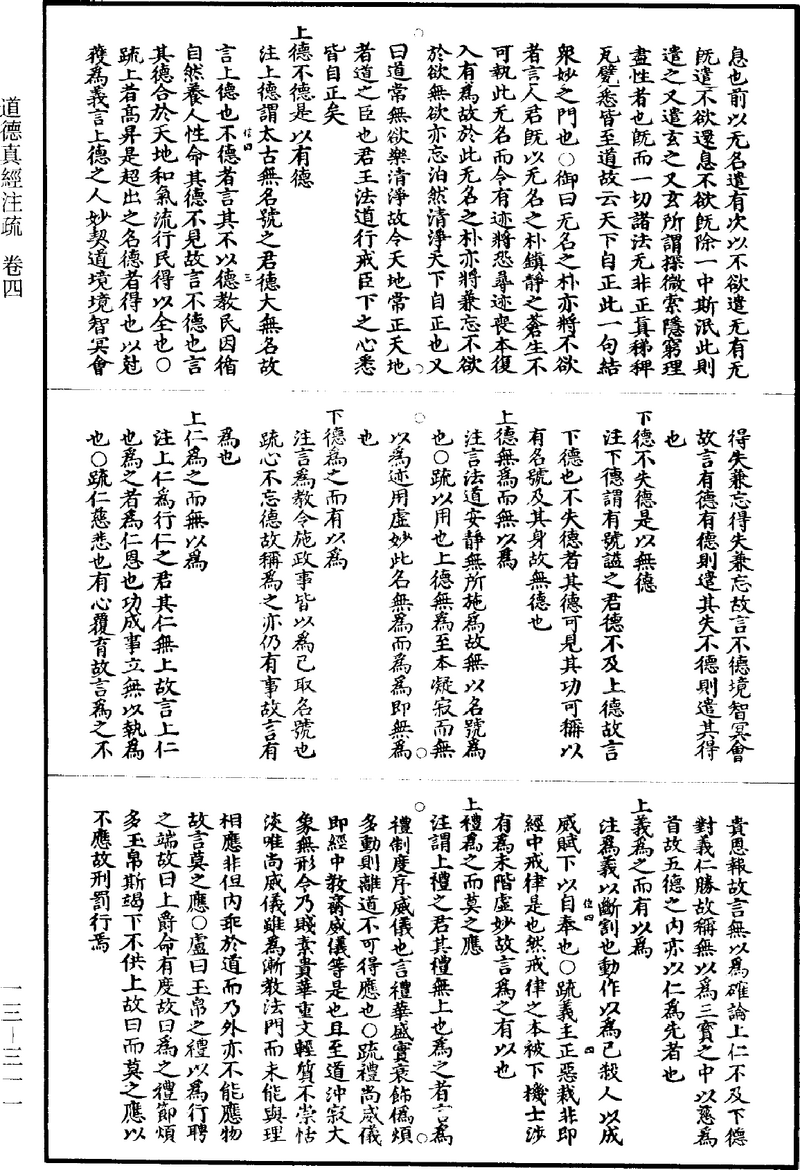 息也前以无名遣有次以不欲遣无有无
旣遣不欲還息不欲旣除一中斯泯此則
遣之又遣玄之又玄所謂探微索隱窮理
盡性者也旣而一切諸法无非正眞稊稗
瓦甓悉皆至道故云天下自正此一句結
衆妙之門也○御曰无名之朴亦將不欲
者言人君旣以无名之朴鎭靜之蒼生不
可執此无名而令有迹將恐尋迹喪本復
入有爲故於此无名之朴亦將兼忘不欲
於欲無欲亦忘泊然清淨天下自正也又
曰道常無欲樂清淨故令天地常正天地
者道之臣也君王法道行戒臣下之心悉
皆自正矣
上德不德是以有德
注上德謂太古無名號之君德大無名故
言上德也不德者言其不以德教民因循
自然養人性命其德不見故言不德也言
其德合於天地和氣流行民得以全也○
疏上者高昇是超出之名德者得也以尅
獲為義言上德之人妙契道境境智冥會
得失兼忘得失兼忘故言不德境智冥會
故言有德有德則遣其失不德則遣其得
也
下德不失德是以無德
注下德謂有號謚之君德不及上德故言
下德也不失德者其德可見其功可稱以
有名號及其身故無德也
上德無為而無以為
注言法道安靜無所施為故無以名號為
也○疏以用也上德無為至本凝寂而無
以為迹用虛妙此名無為而為為即無為
也
下德為之而有以為
注言為教令施政事皆以為己取名號也
疏心不忘德故稱為之亦仍有事故言有
為也
上仁為之而無以為
注上仁為行仁之君其仁無上故言上仁
也為之者為仁恩也功成事立無以執為
也○疏仁慈悲也有心覆育故言為之不
貴恩報故言無以為確論上仁不及下德
對義仁勝故稱無以為三寶之中以慈為
首故五德之內亦以仁為先者也
上義為之而有以為
注為義以斷割也動作以為己殺人以成
威賦下以自奉也○疏義主正惡裁非即
經中戒律是也然戒律之本被下機士涉
有為未階虛妙故言為之有以也
上禮為之而莫之應
注謂上禮之君其禮無上也為之者言為
禮制度序威儀也言禮華盛實衰飾偽煩
多動則離道不可得應也○疏禮尚威儀
即經中教齋威儀等是也且至道沖寂大
象無形今乃賤素貴華重文輕質不崇恬
淡唯尚威儀雖為漸教法門而未能與理
相應非但內乖於道而乃外亦不能應物
故言莫之應○盧曰玉帛之禮以為行聘
之端故曰上爵命有度故曰為之禮節煩
多玉帛斯竭下不供上故曰而莫之應以
不應故刑罰行焉
道德真經注疏 卷四
一三—三一一